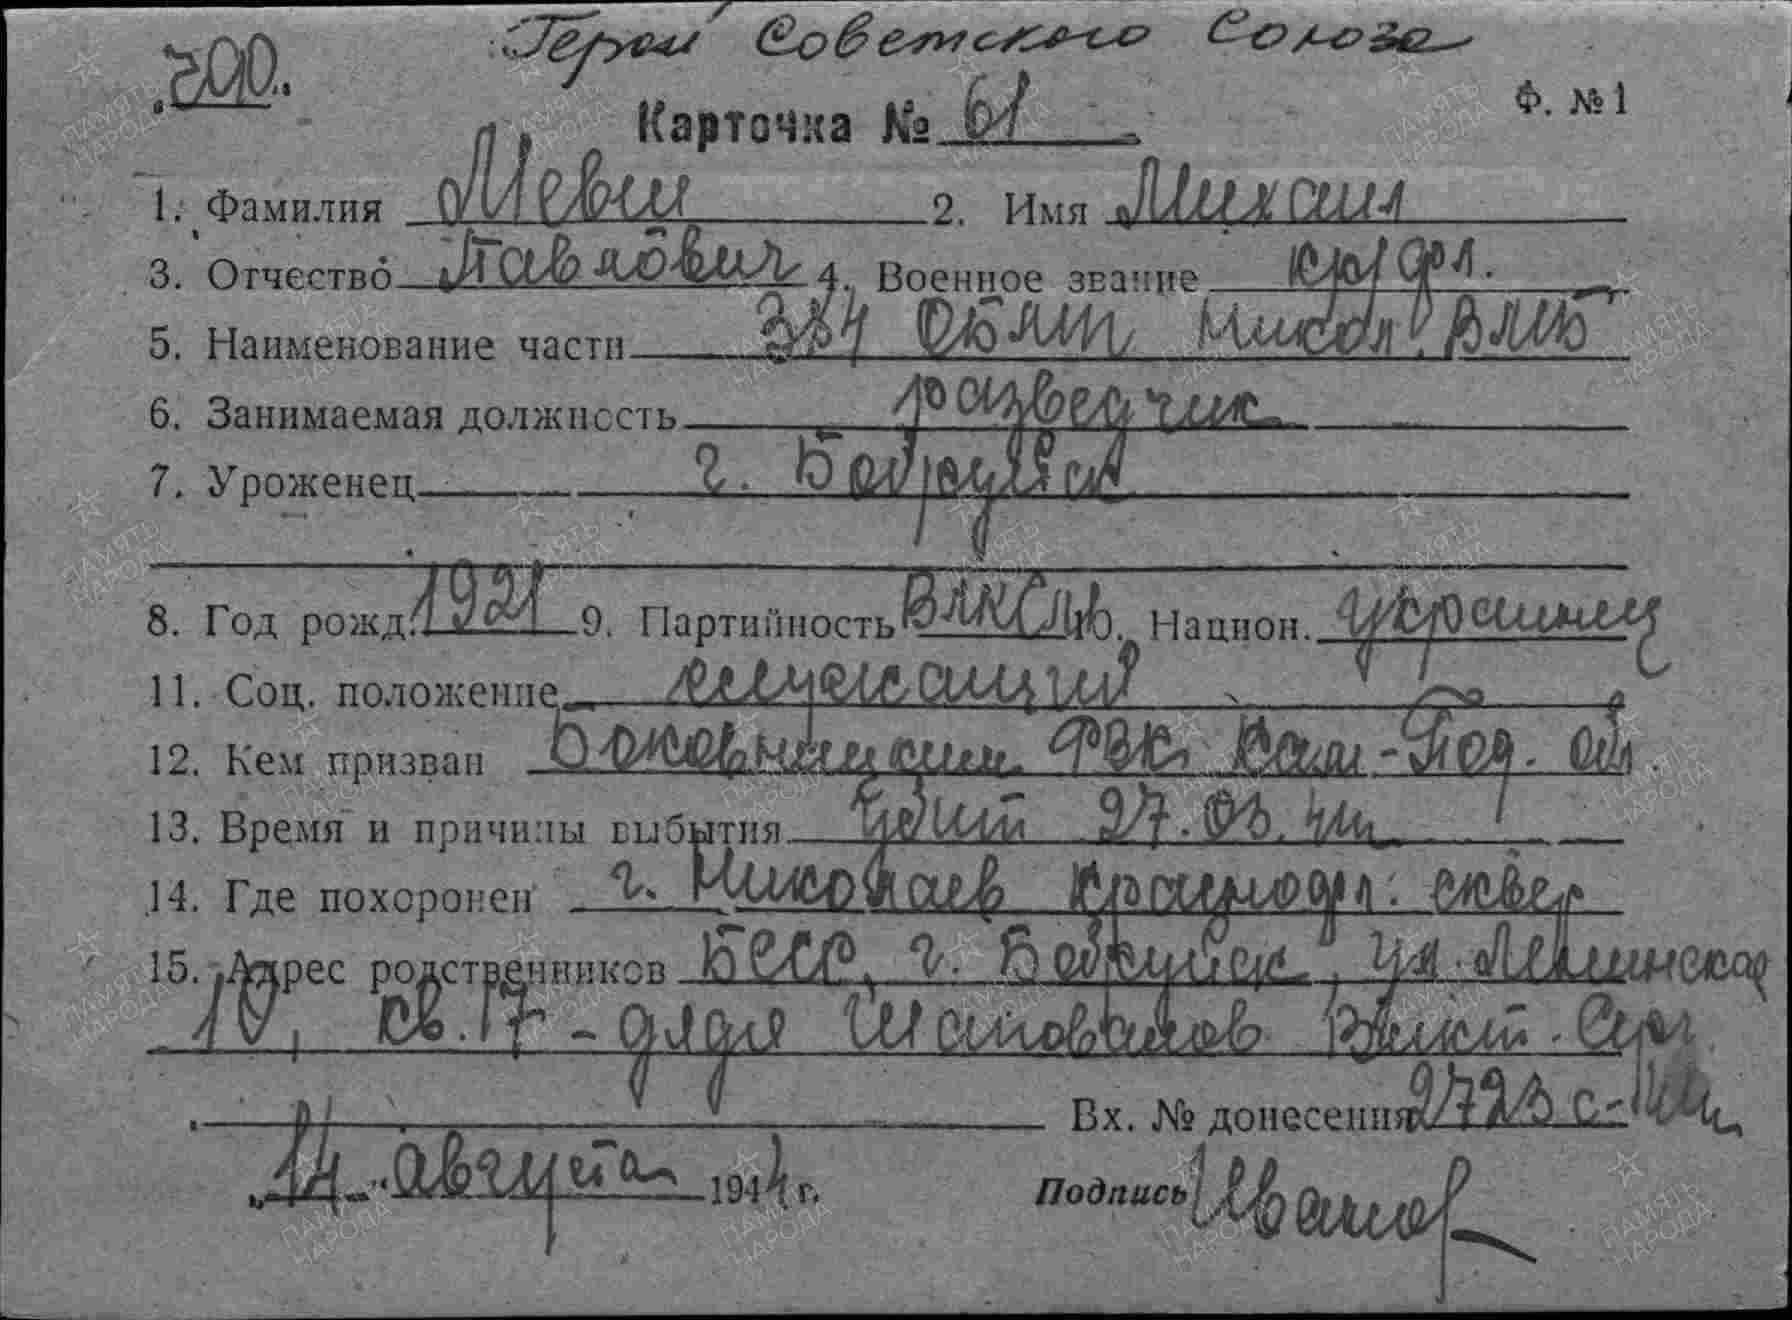 Герой Советского Союза
200.
Ф. №1
Карточка № 61
1. Фамилия Мевш 2. Имя Михаил
3. Отчество Павлович 4. Военное звание кр/фл.
5. Наименование части 384 ОБМП Никол. ВМБ
6. Занимаемая должность разведчик
7. Уроженец г. Бобруйск
8. Год рожд. 1921 9. Партийность ВЛКСМ 10. Национ. украинец
11. Соц. положение служащий
12. Кем призван РВК, Кам-Под. обл
13. Время и причины выбытия убит 27.03.44
14. Где похоронен г. Николаев сквер
15. Адрес родственников БССР, г. Бобруйск, ул. Ленинская
10, кв. 17 - дядя Шаповалов
Вх. № донесения 2723 с-44
„14" августа 1944 г.
Подпись Иванов
ПАМЯТЬ НАРОДА